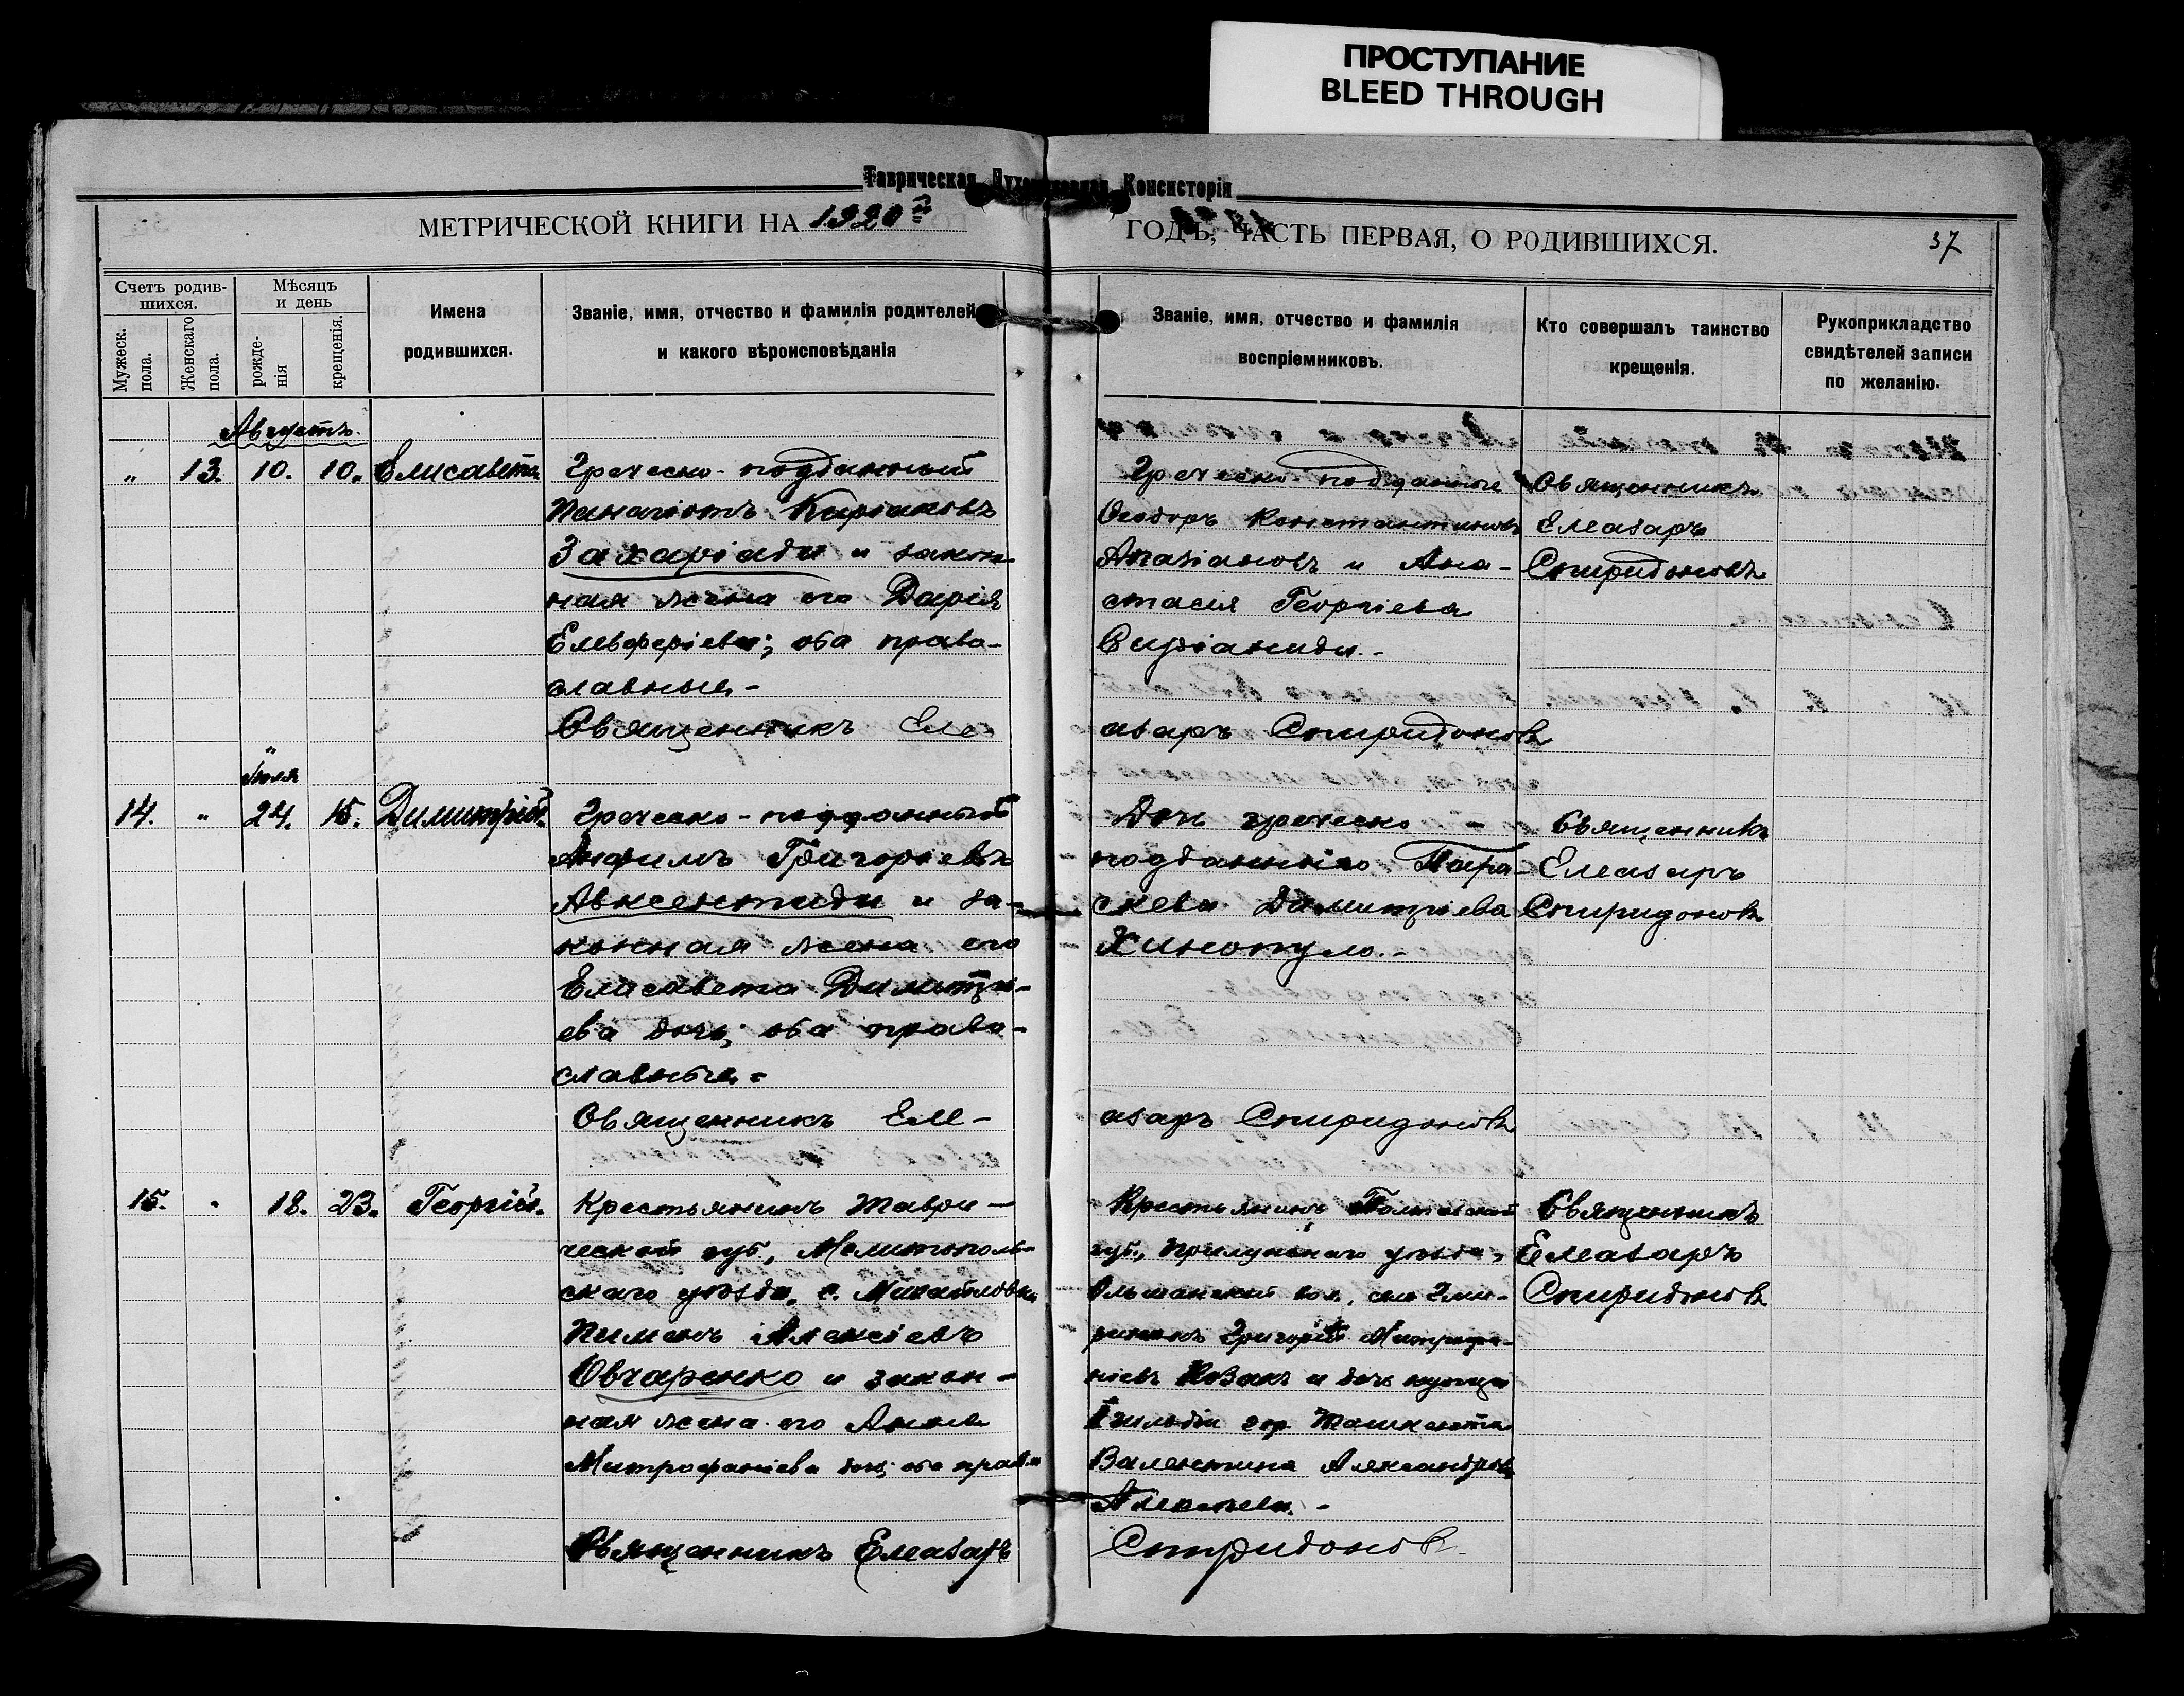 ПРОСТУПАНИЕ
BLEED THROUGH
Таврическая Духовная Консисторія
МЕТРИЧЕСКОЙ КНИГИ НА 1920й
ГОДЪ, ЧАСТЬ ПЕРВАЯ, О РОДИВШИХСЯ.
37
Счетъ родив-
шихся.
Мужеск.
пола.
Женскаго
пола.
Мѣсяцъ
и день
рожде-
нія
крещенія.
Имена
родившихся.
Званіе, имя, отчество и фамилія родителей
и какого вѣроисповѣданія
Званіе, имя, отчество и фамилія
воспріемниковъ.
Кто совершалъ таинство
крещенія.
Рукоприкладство
свидѣтелей записи
по желанію.
Августъ.
„ 13. 10. 10. Елисавета.
Греческо-подданный
Панаіотъ Киріаковъ
Захаріади и закон-
ная жена его Дарія
Елевферіева; оба право-
славные.-
Священникъ Еле-
Греческо-подданные
Ѳеодоръ Константиновъ
и Ана-
стасія Георгіева
Священникъ
Елеазаръ
Спиридоновъ
азаръ Спиридоновъ
„
Іюля
14. „ 24. 15. Димитрій.
Греческо-подданный
Анфимъ Григорьевъ
Авксентиди и за-
конная жена его
Елисавета Димитрі-
ева дочь; оба право-
славные.-
Священникъ Еле-
Дочь греческо-
подданнаго Пара-
скева Димитріева
Хинопуло.-
Священникъ
Елеазаръ
Спиридоновъ
азаръ Спиридоновъ
15. „ 18. 23. Георгій.
Крестьянинъ Таври-
ческой губ., Мелитополь-
скаго уѣзда, с. Михайловки
Пименъ Алексіевъ
Овчаренко и закон-
ная жена его Анна
Митрофаніева дочь; оба правосл.
Священникъ Елеазаръ
Крестьянинъ Полтавской
губ., Прилукскаго уѣзда,
Григорій Митрофа-
ніевъ Козакъ и дочь купца
гильдіи гор. Ташкента
Валентина Александрова
Священникъ
Елеазаръ
Спиридоновъ
Спиридоновъ.